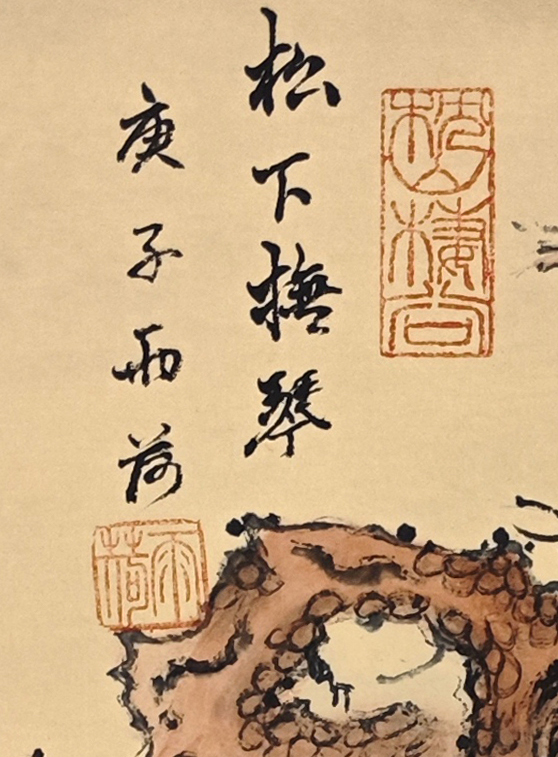 松下撫琴
庚子雨荷
雨荷